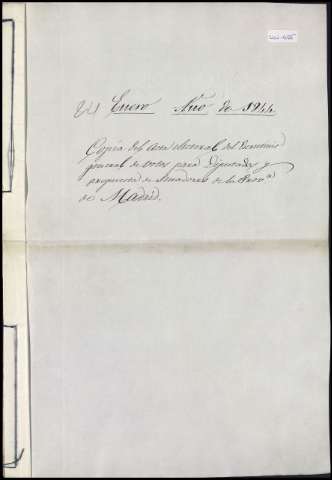 Enero Año de 1844
Copia del acta electoral del Escrutinio
general de votos para Diputados y
propuesta de Senadores de la Prov.ª
de Madrid.